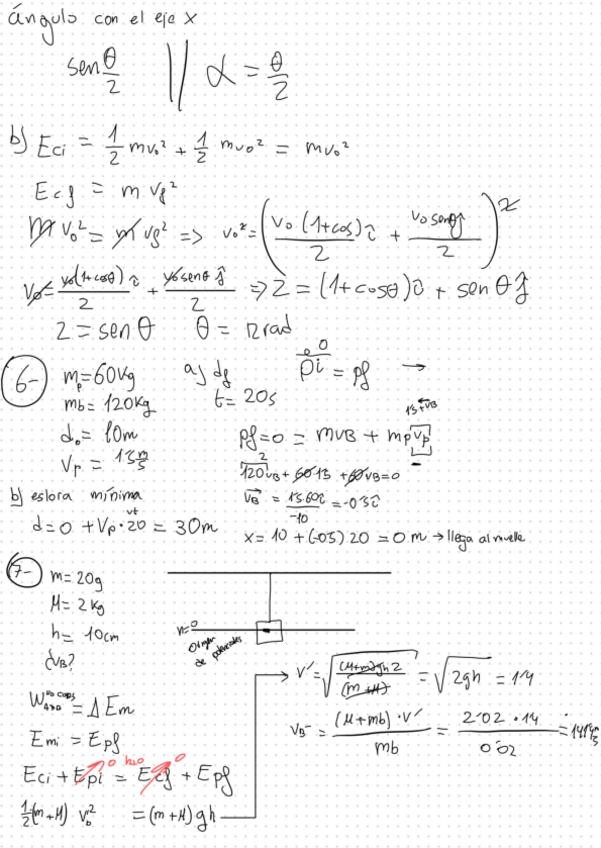 ángulo con el eje x
sen θ/2 // α = θ/2
b) Eci = 1/2 mv₀² + 1/2 mv₀² = mv₀²
Ecf = m vf²
m v₀² = m vf² => v₀² = (v₀ (1+cos)î/2 + v₀ senθĵ/2)²
v₀ = v₀(1+cosθ)î/2 + v₀ senθ ĵ/2 => 2 = (1+cosθ)î + sen θ ĵ
2 = sen θ θ = π rad
6- mp = 60kg a) df pi = pf →
mb = 120kg t = 20s
d₀ = 10m pf = 0 = mvB + mp vp
Vp = 1'5 m/s 120vB + 60·1'5 + 60vB = 0
b) eslora mínima
d = 0 + Vp · 20 = 30m x = 10 + (-0'5) 20 = 0 m → llega al muelle
7- m = 20g
M = 2 kg
h = 10cm
¿vB?
h=0 Origen de potenciales
ΔEm
Emi = Epf
Eci + Epi = Ecf + Epf
1/2 (m+M) vb² = (m+M) gh
v' = √((M+m)gh 2/(m+M)) = √2gh = 1'4
vB = (M+mb) · v'/mb = 2'02 · 1'4/0'02